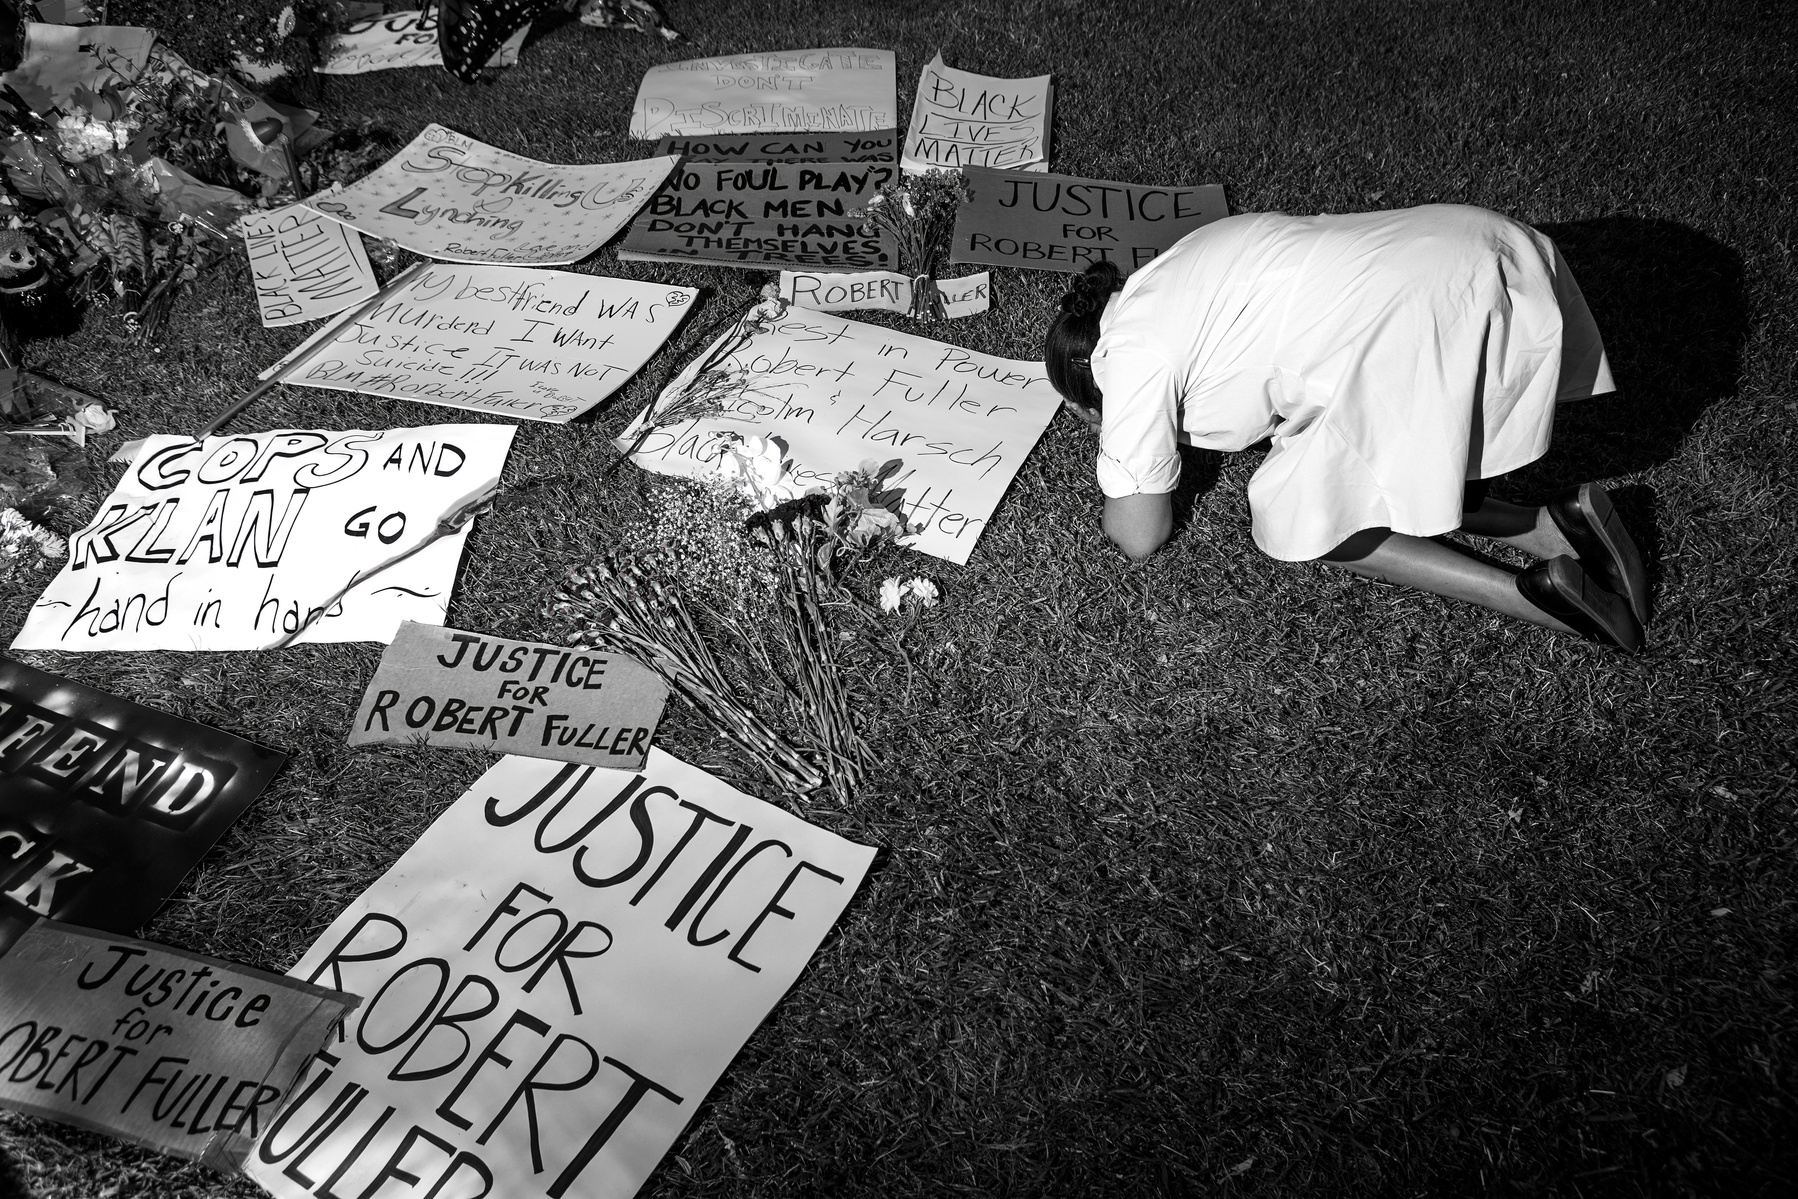 JUS
FO
INVESTIGATE
DON'T
DISCRIMINATE
BLACK
LIVES
MATTER
HOW CAN YOU
SAY THERE WAS
NO FOUL PLAY?
BLACK MEN
DON'T HANG
THEMSELVES
IN TREES!
JUSTICE
FOR
ROBERT F
BLM
Stop Killing Us
Lynching
Love and
Robert Fuller
BLACK LIVES
MATTER
ROBERT FULLER
My bestfriend WAS
Murderd I WANT
Justice IT WAS NOT
Suicide!!!
BLM #RobertFuller
Rest in Power
Robert Fuller
&
colm Harsch
Black Lives
tter
COPS AND
KLAN GO
~hand in hand~
JUSTICE
FOR
ROBERT FULLER
FEND
CK
JUSTICE
FOR
ROBERT
FULLER
Justice
for
OBERT FULLER